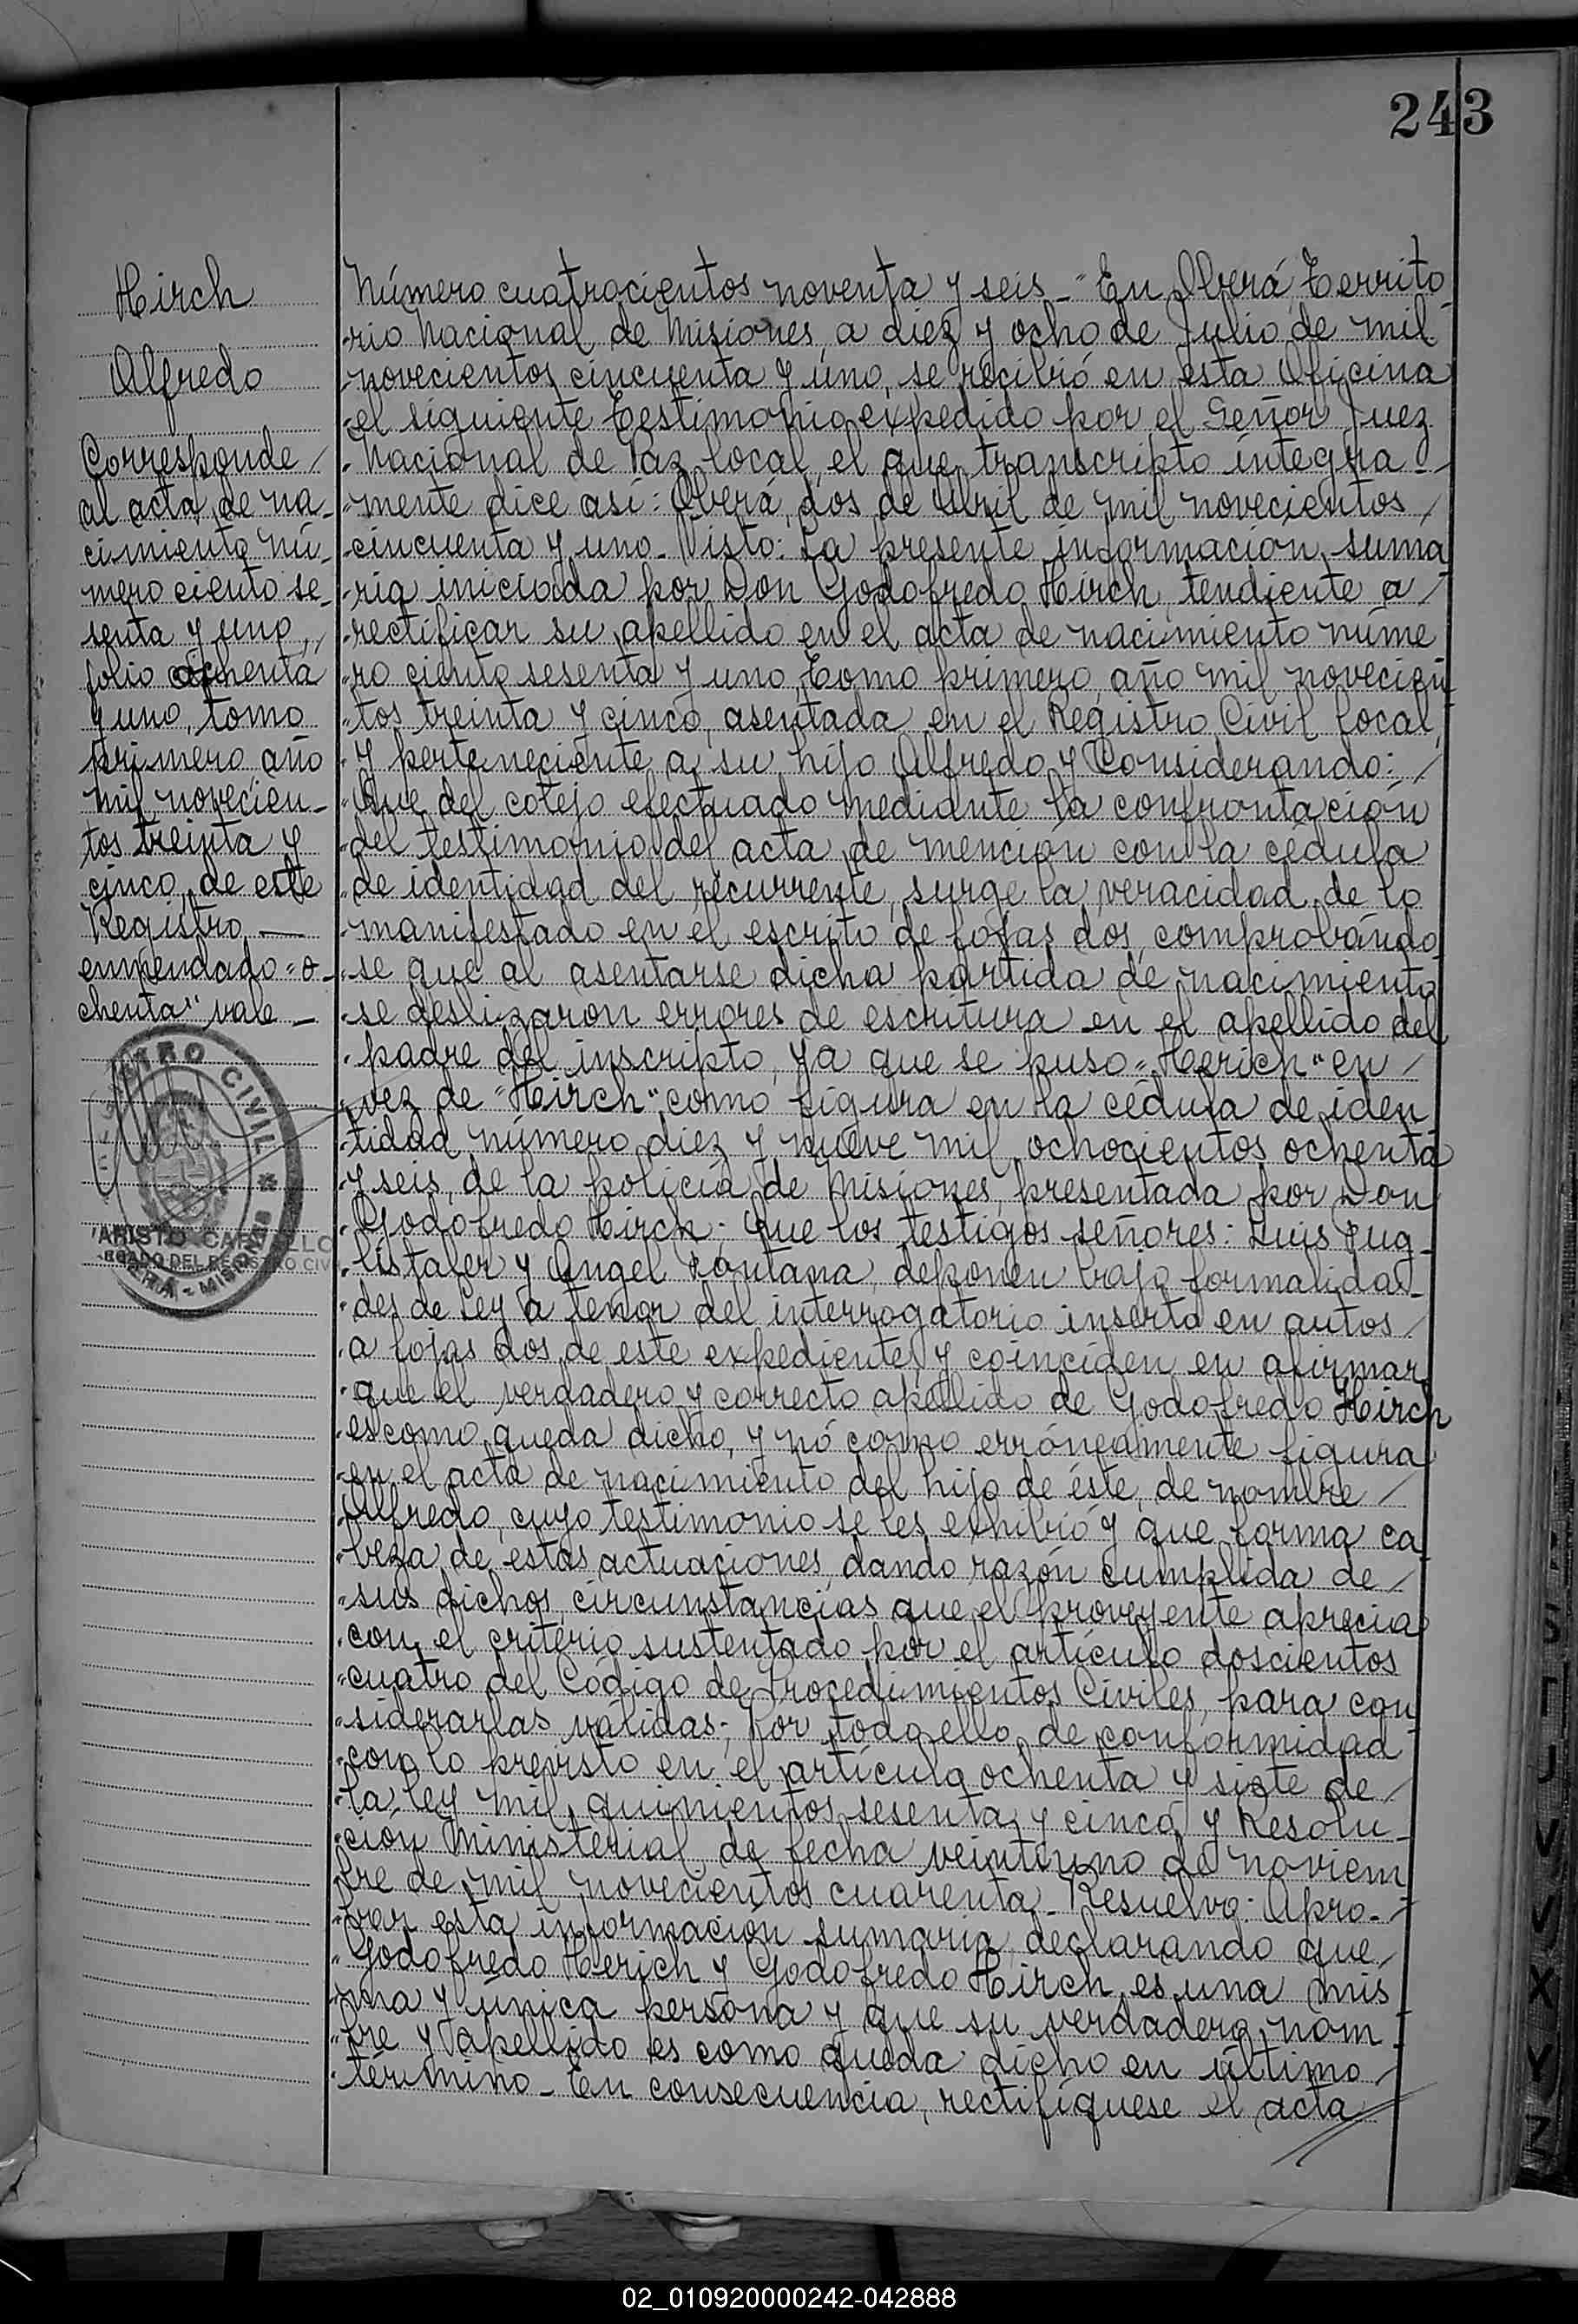 243
Hirch
Alfredo
Corresponde /
al acta de na-
cimiento nú-
mero ciento se-
senta y uno, /
folio ochenta
y uno, tomo
primero año
mil novecien-
tos treinta y
cinco, de este
Registro —
enmendado "o-
chenta" vale —
REGISTRO CIVIL *
OBERÁ - MISIONES
ARISTO
DEL REGISTRO CIV
Número cuatrocientos noventa y seis - "En Oberá, Territo-
"rio Nacional de Misiones, a diez y ocho de Julio de mil
"novecientos cincuenta y uno, se recibió en esta Oficina
"el siguiente Testimonio expedido por el Señor Juez
"Nacional de Paz local, el que transcripto íntegra- /
"mente dice así: Oberá, dos de Abril de mil novecientos /
"cincuenta y uno - Visto: La presente información suma
"ria iniciada por Don Godofredo Hirch, tendiente a /
"rectificar su apellido en el acta de nacimiento núme
"ro ciento sesenta y uno, Tomo primero, año mil novecien-
"tos treinta y cinco, asentada en el Registro Civil local,
"y perteneciente a su hijo Alfredo, y Considerando: /
"Que del cotejo efectuado mediante la confrontación
"del testimonio del acta de mención con la cédula
"de identidad del recurrente, surge la veracidad de lo
"manifestado en el escrito de fojas dos, comprobándo
"se que al asentarse dicha partida de nacimiento
"se deslizaron errores de escritura en el apellido del
"padre del inscripto, ya que se puso "Herich" en /
"vez de "Hirch", como figura en la cédula de iden
"tidad número diez y nueve mil ochocientos ochenta
"y seis, de la policía de Misiones, presentada por Don
"Godofredo Hirch; Que los testigos señores: Luis
"y Angel deponen bajo formalida-
"des de ley a tenor del interrogatorio inserto en autos /
"a fojas dos de este expediente, y coinciden en afirmar
"que el verdadero y correcto apellido de Godofredo Hirch
"es como queda dicho, y nó como erróneamente figura
"en el acta de nacimiento del hijo de éste, de nombre /
"Alfredo, cuyo testimonio se les exhibió y que forma ca
"beza de estas actuaciones, dando razón cumplida de /
"sus dichos, circunstancias que el proveyente aprecia
"con el criterio sustentado por el artículo doscientos
"cuatro del Código de Procedimientos Civiles, para con
"siderarlas válidas; Por todo ello, de conformidad
"con lo previsto en el artículo ochenta y siete de /
"la ley mil quinientos sesenta y cinco y Resolu-
"ción Ministerial de fecha veintiuno de noviem
"bre de mil novecientos cuarenta - Resuelvo: Apro- /
"bar esta información sumaria, declarando que /
"Godofredo Herich y Godofredo Hirch, es una mis
"ma y única persona y que su verdadero nom-
"bre y apellido es como queda dicho en último /
"termino - En consecuencia, rectifíquese el acta
S
T
U
V
X
Y
Z
02_010920000242-042888